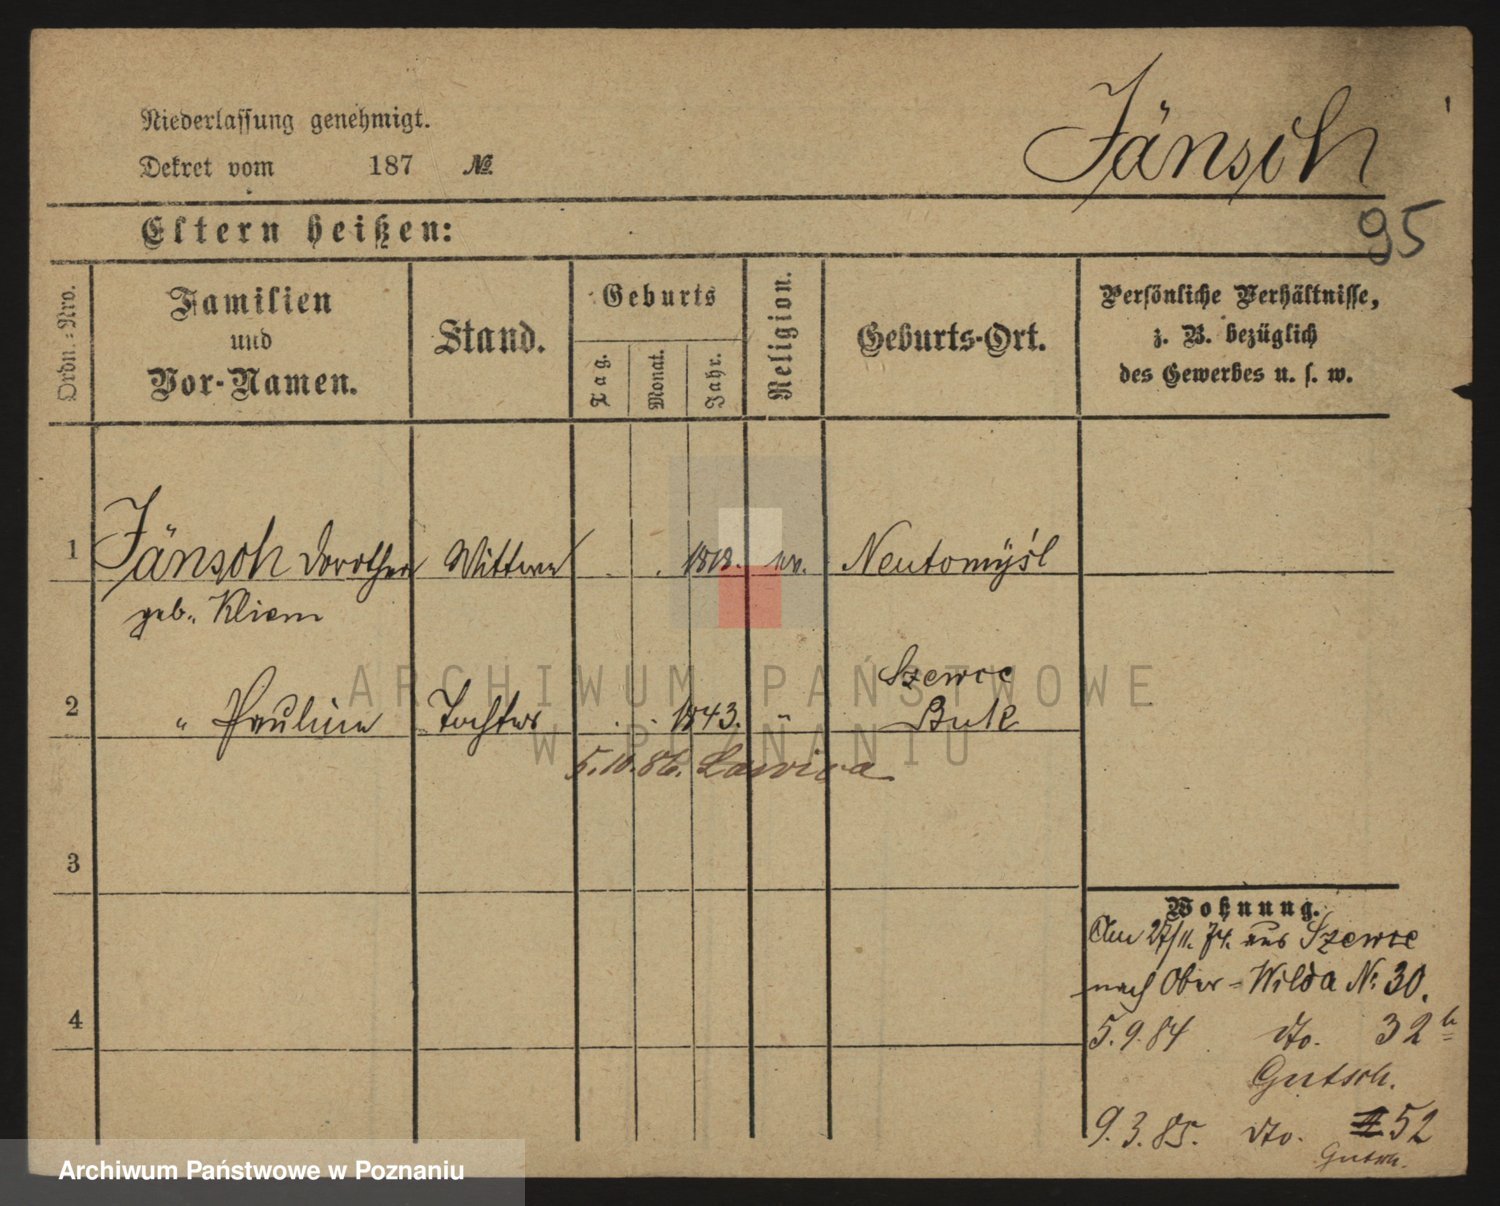 Niederlassung genehmigt.
Jänsch
Dekret vom 187 №
95
Eltern heißen:
Ordn.-Nro.
Familien
und
Vor-Namen.
Stand.
Geburts
Tag.
Monat.
Jahr.
Religion.
Geburts-Ort.
Persönliche Verhältnisse,
z. B. bezüglich
des Gewerbes u. s. w.
1 Jänsch Dorothea Wittwe 1818. ev. Neutomyśl
geb. Kliem
Szewce
2 " Pauline Tochter 1843. " Buk
5.10.86. Lawica
3
4
Wohnung.
Am 27/11. 74. aus Szewce
nach Ober-Wilda № 30.
5.9.84 dto. 32
Gutsch.
9.3.85. dto. 52
Gutsch.
ARCHIWUM PAŃSTWOWE
W POZNANIU
Archiwum Państwowe w Poznaniu